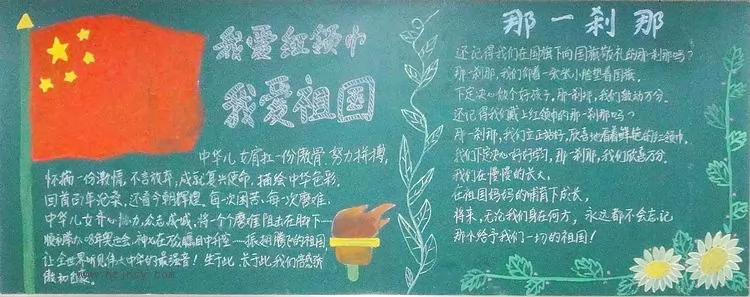 我爱红领巾
我爱祖国
中华儿女肩扛一份傲骨,努力拼搏,
怀揣一份激情,不言放弃,成就复兴使命,描绘中华色彩。
回首61年纪录,还看今朝辉煌。每一次困苦、每一次磨难,
中华儿女齐心协力,众志成城,将一个个磨难阻击在脚下
08年奥运会,神七在万众瞩目中升空 振翅腾飞的祖国
让全世界听见伟大中华的最强音!生于此 长于此 我们备感骄
傲和自豪。
那一刹那
还记得我们在国旗下向国旗敬礼的那一刹那吗?
那一刹那,我们仰着一张张小脸望着国旗,
下定决心做个好孩子。那一刹那,我们激动万分。
还记得我们戴上红领巾的那一刹那吗?
那一刹那,我们立正站好,欣喜地看着鲜艳的红领巾,
我们下定决心好好学习,那一刹那,我们欣喜万分。
我们在慢慢的长大,
在祖国妈妈的哺育下成长,
将来,无论我们身在何方,永远都不会忘记
那个给予我们一切的祖国!